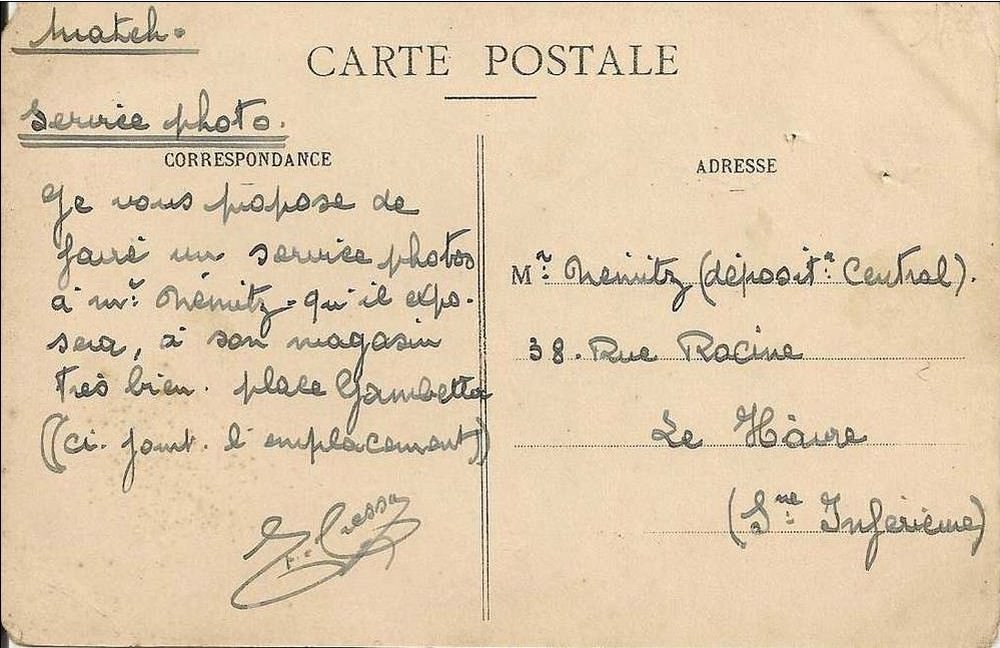 Match.
CARTE POSTALE
Service photo.
CORRESPONDANCE
Je vous propose de
faire un service photos
à Mr: Némitz - qu'il expo-
sera, à son magasin
très bien. place Gambetta
(ci. joint. l'emplacement)
ADRESSE
Mr: Némitz (déposit.re Central).
38. Rue Racine
Le Hâvre
(Sne Inférieure)